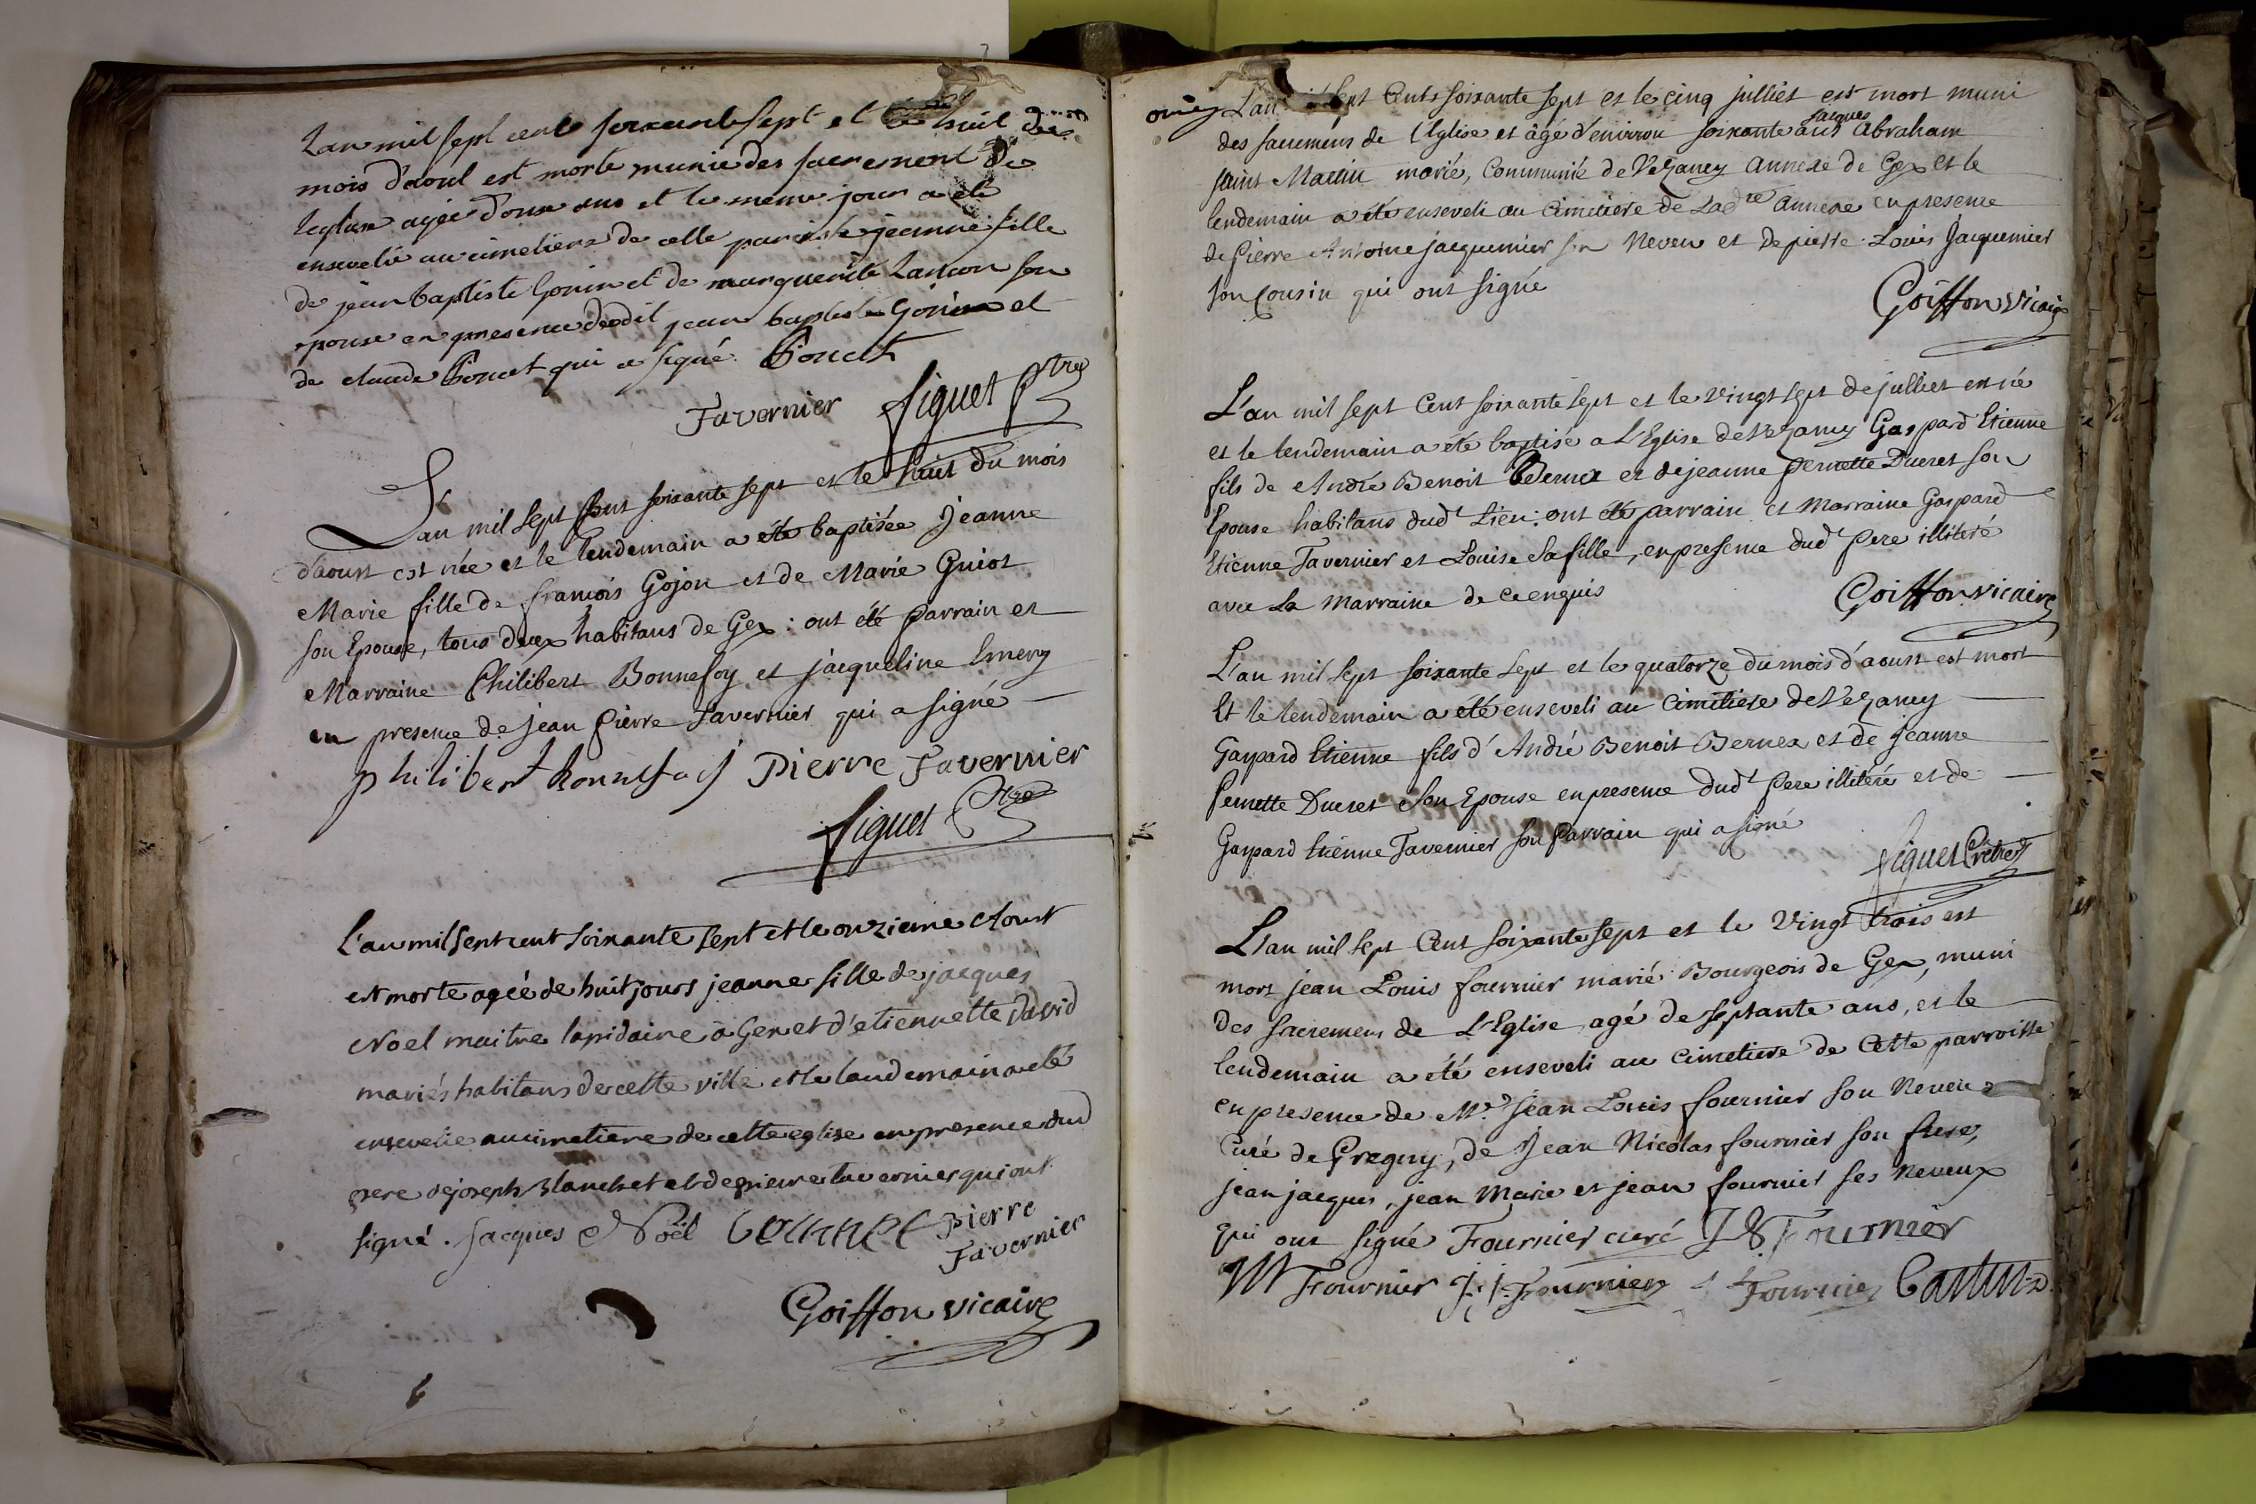 Lan mil sept cent soixante sept et le huit du
mois d'aout est morte munie des sacrement de
leglise agée d'onze ans et le meme jour a ete
ensevelie au cimetiere de cette paroisse jeanne fille
de jean baptiste Gonin et de marguerite Lancon son
epouse en presence dudit jean baptiste Gonin et
de claude Poncet qui a signé. Poncet
Tavernier figuet Ptre
L'an mil sept Cent soixante sept et le huit du mois
d'aoust est née et le lendemain a été baptisée Jeanne
Marie fille de françois Gojon et de Marie Guiot
son Epouse, tous deux habitans de Gex : ont été parrain et
Marraine Philibert Bonnefoy et jacqueline Emery
en presence de jean pierre Tavernier qui a signé
philibert bonnefoy Pierre Tavernier
figuet Ptre
L'an mil sept cent soixante sept et le onzieme Aoust
est morte agée de huit jours jeanne fille de jacques
Noel maitre lapidaire a Gex et d'etiennette David
mariés habitans de cette ville et le landemain a eté
ensevelie au cimetiere de cette eglise en presence dud
pere de joseph Blanchet et de pierre tavernier qui ont
signé. Jacques Noël Pierre
Tavernier
Goiffon vicaire
omis L'an sept Cents soixante sept et le cinq julliet est mort muni
des sacremens de l'Eglise et âgé d'environ soixante ans Jacques Abraham
saint Martin marié, Communié de Vezancy annexe de Gex et le
lendemain a été enseveli au Cimetiere de Ladte annexe en presence
de Pierre Antoine jacquemier son Neveu et de pierre Louis Jacquemier
son Cousin qui ont signé
Goiffon vicaire
L'an mil sept Cent soixante sept et le vingt sept de julliet est né
et le lendemain a été baptisé a L'Eglise de Vezancy Gaspard Etienne
fils de André Benoit Bernex et de jeanne pernette Ducret son
Epouse habitans dudt Lieu : ont été parrain et Marraine Gaspard
Etienne Tavernier et Louise sa fille, en presence dudt Pere illiteré
avec La Marraine de ce enquis
Goiffon vicaire
L'an mil sept soixante sept et le quatorze du mois d'aoust est mort
Et le lendemain a été enseveli au Cimetiere de Vezancy
Gaspard Etienne fils d'André Benoit Bernex et de Jeanne
Pernette Ducret son Epouse en presence dudt Pere illiteré et de
Gaspard Etienne Tavernier son Parrain qui a signé
figuet Prêtre
L'an mil sept Cent soixante sept et le vingt trois est
mort jean Louis fournier marié Bourgeois de Gex, muni
des sacremens de L'Eglise, agé de septante ans, et le
lendemain a été enseveli au Cimetiere de Cette parroisse
en presence de Mre jean Louis fournier son Neveu
Curé de Gregny, de Jean Nicolas fournier son frere,
jean jacques, jean Marie et jean fournier ses Neveux
qui ont signé Fournier curé Fournier
M Fournier J. j. Fournier Fournier